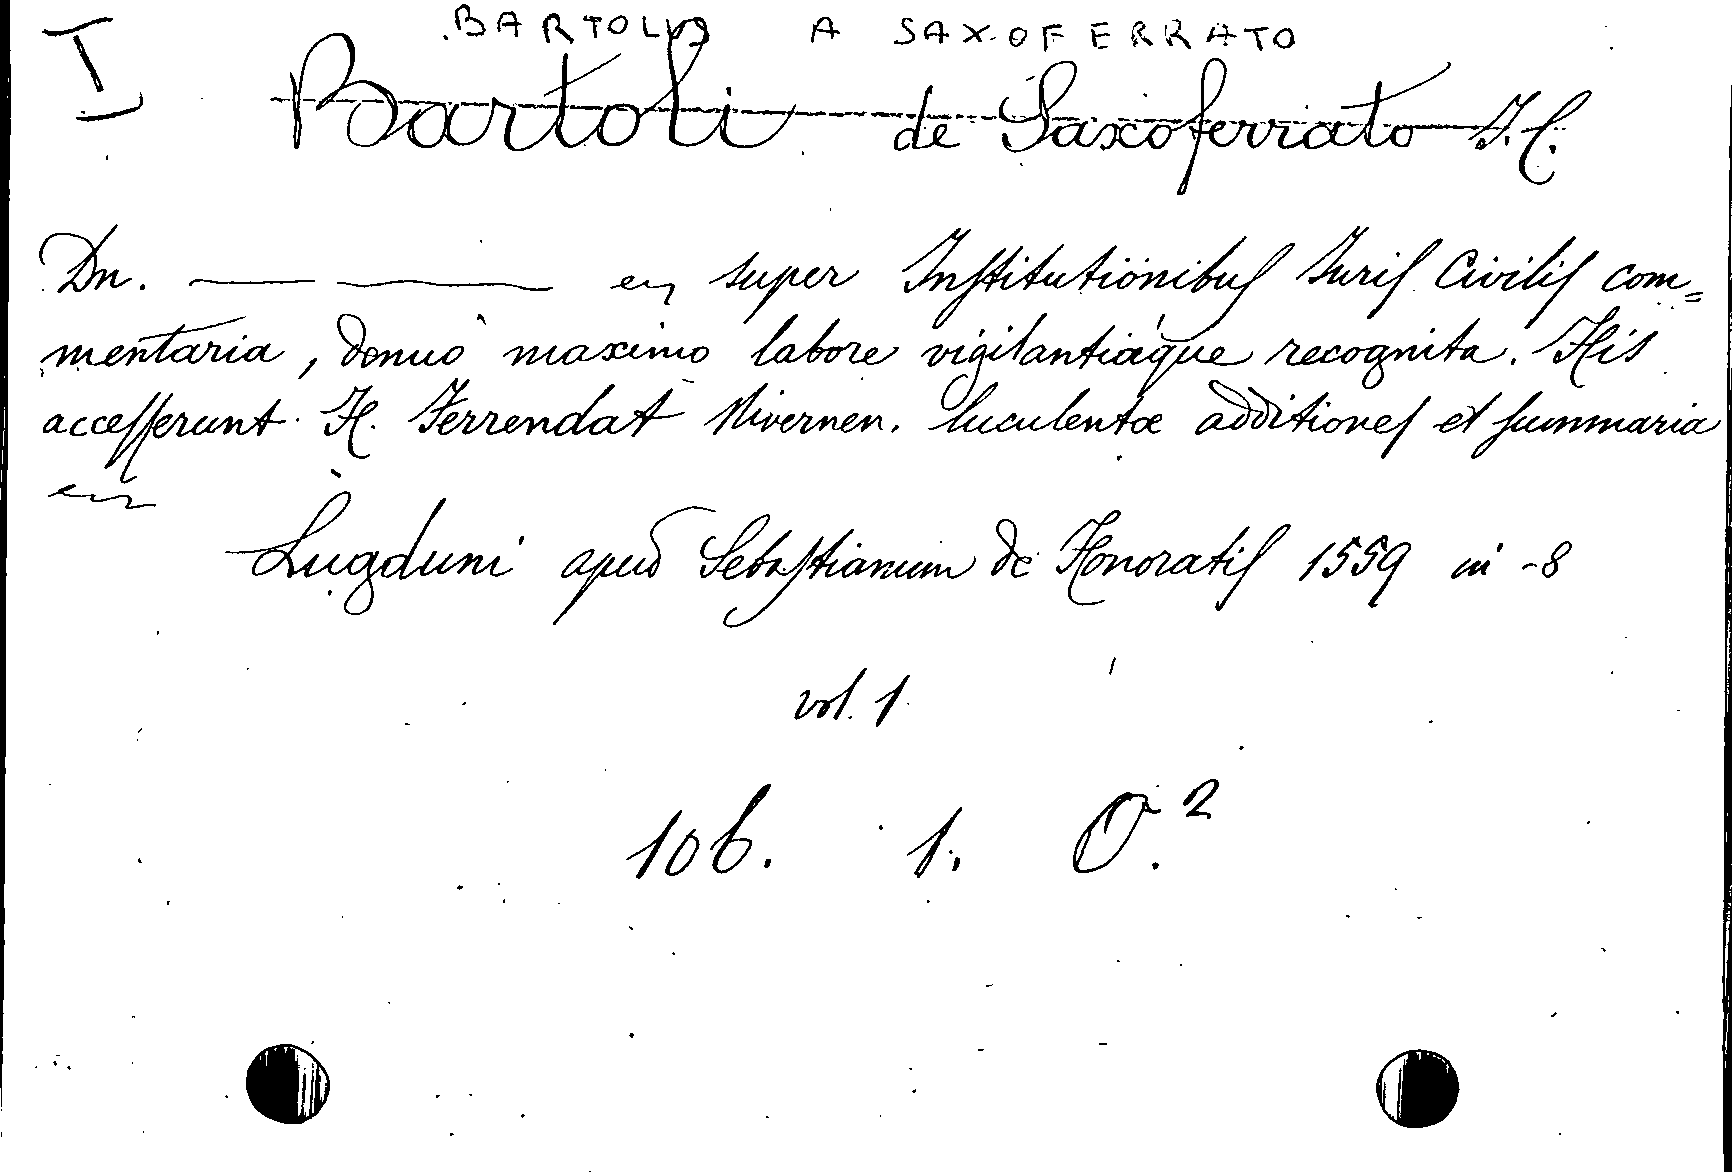 I
BARTOLUS A SAXOFERRATO
Bartoli de Saxoferrato J.C.
Dn. — — super Institutionibus Iuris Civilis com=
mentaria, denuò maximo labore vigilantiáque recognita. His
accesserunt H. Ferrendat Nivernen. luculentæ additiones et summaria
Lugduni apud Sebastianum de Honoratis 1559 in -8
vol. 1
106. 1. O.²